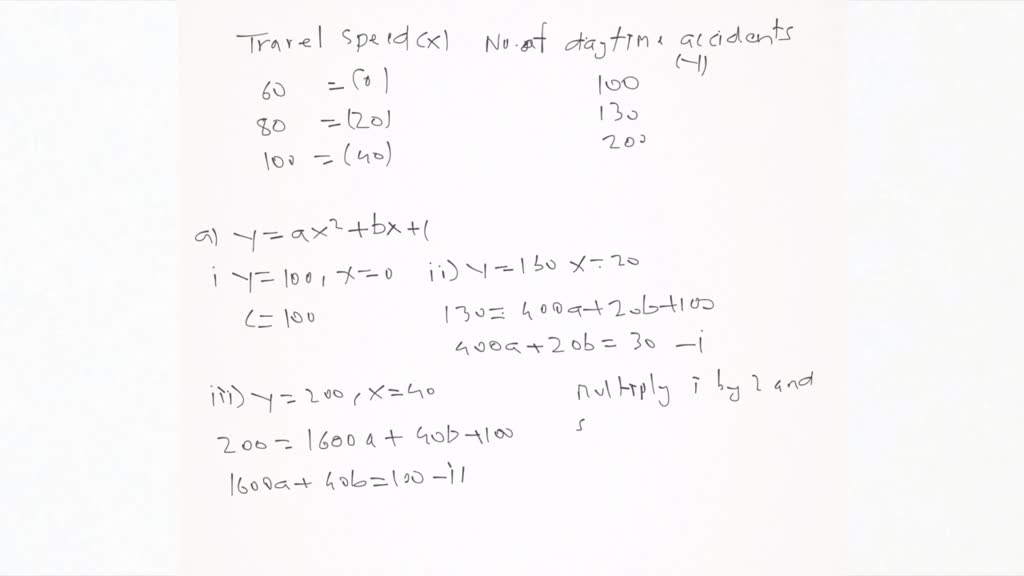 Travel speed (x) No. of daytime accidents
(y)
60 = (0) 100
80 = (20) 130
100 = (40) 200
a) y = ax² + bx + c
i y = 100, x = 0 ii) y = 130 x = 20
c = 100 130 = 400a + 20b + 100
400a + 20b = 30 – i
iii) y = 200, x = 40 multiply i by 2 and
200 = 1600a + 40b + 100 s
1600a + 40b = 100 – ii